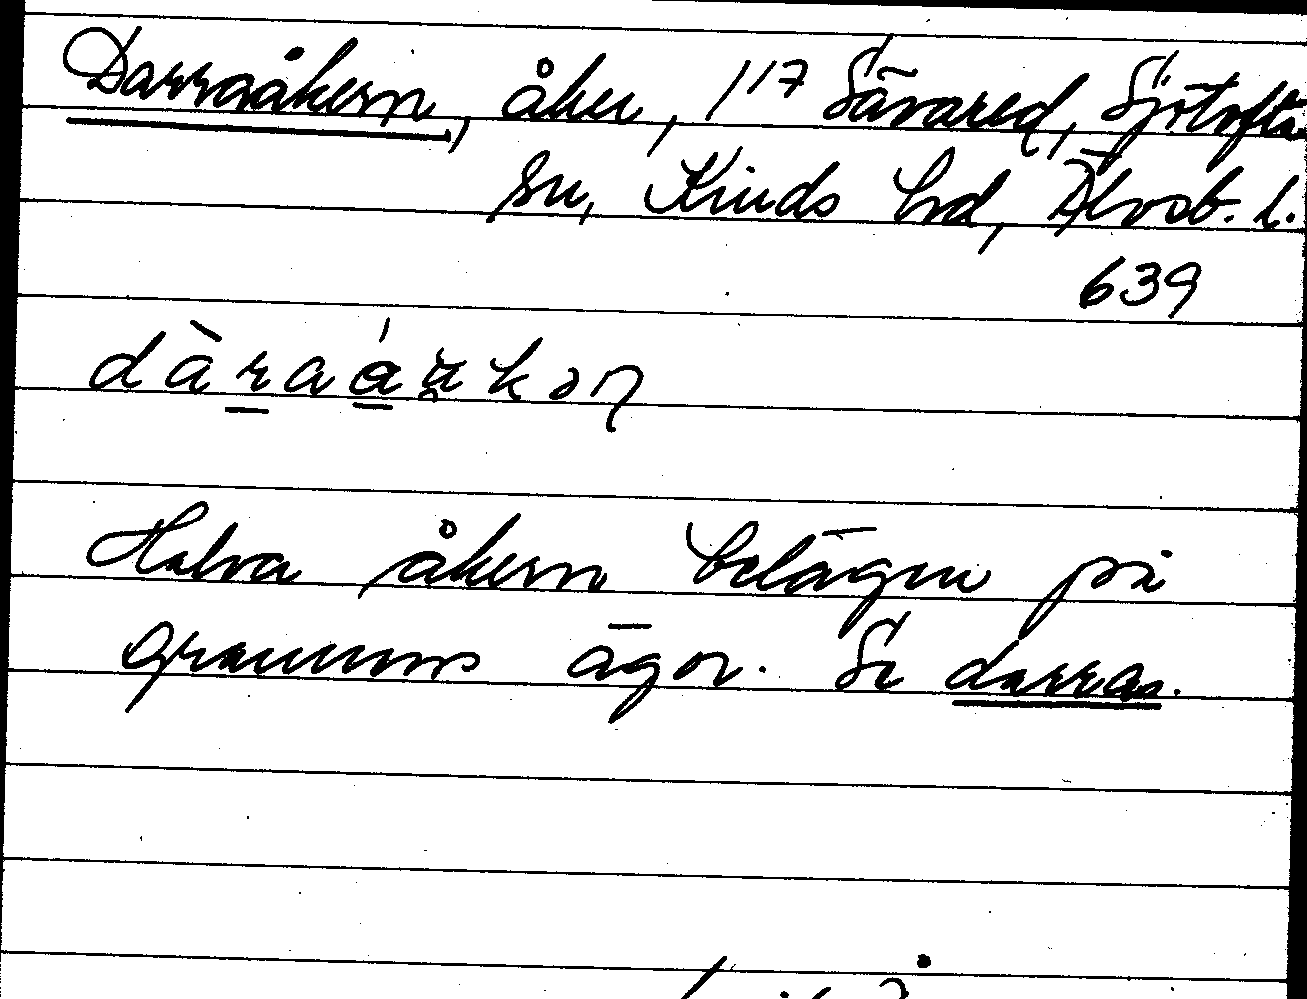 Darraåkern, åker, 1/17 Sävared, Sjötofta
sn, Kinds hd, Älvsb. l.
639
Halva åkern belägen på
grannens ägor. Se darra.